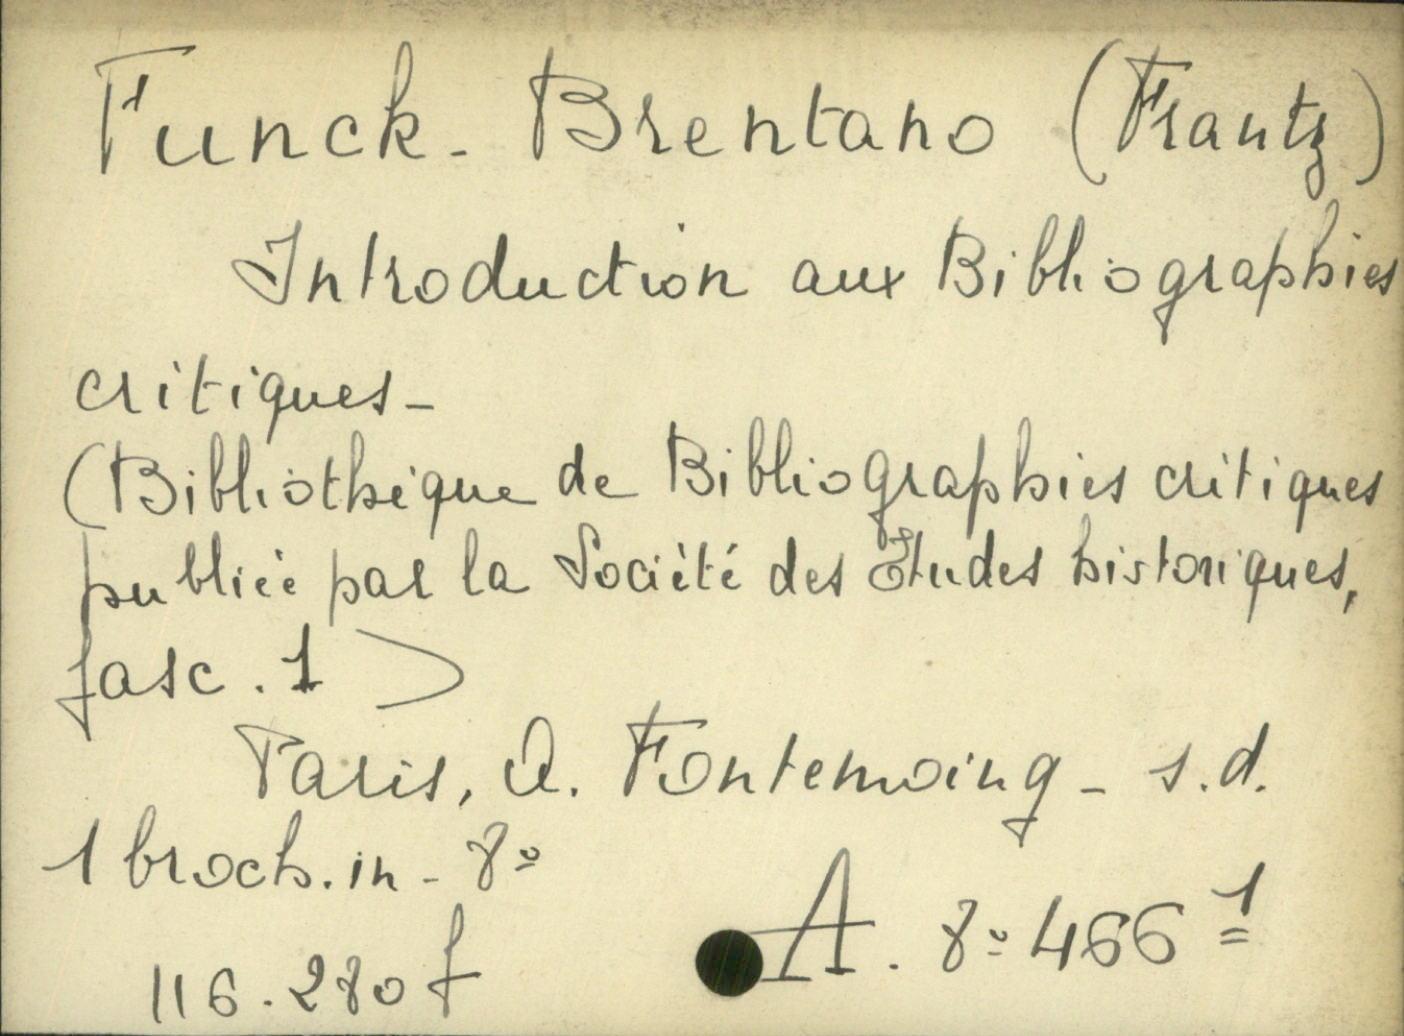 Funck-Brentano (Frantz)
Introduction aux Bibliographies
critiques-
(Bibliothèque de Bibliographies critiques
publiée par la Société des Études historiques,
fasc. 1)
Paris, A. Fontemoing - s.d.
1 broch. in-8º
116.280 f
A. 8º 466 ¹